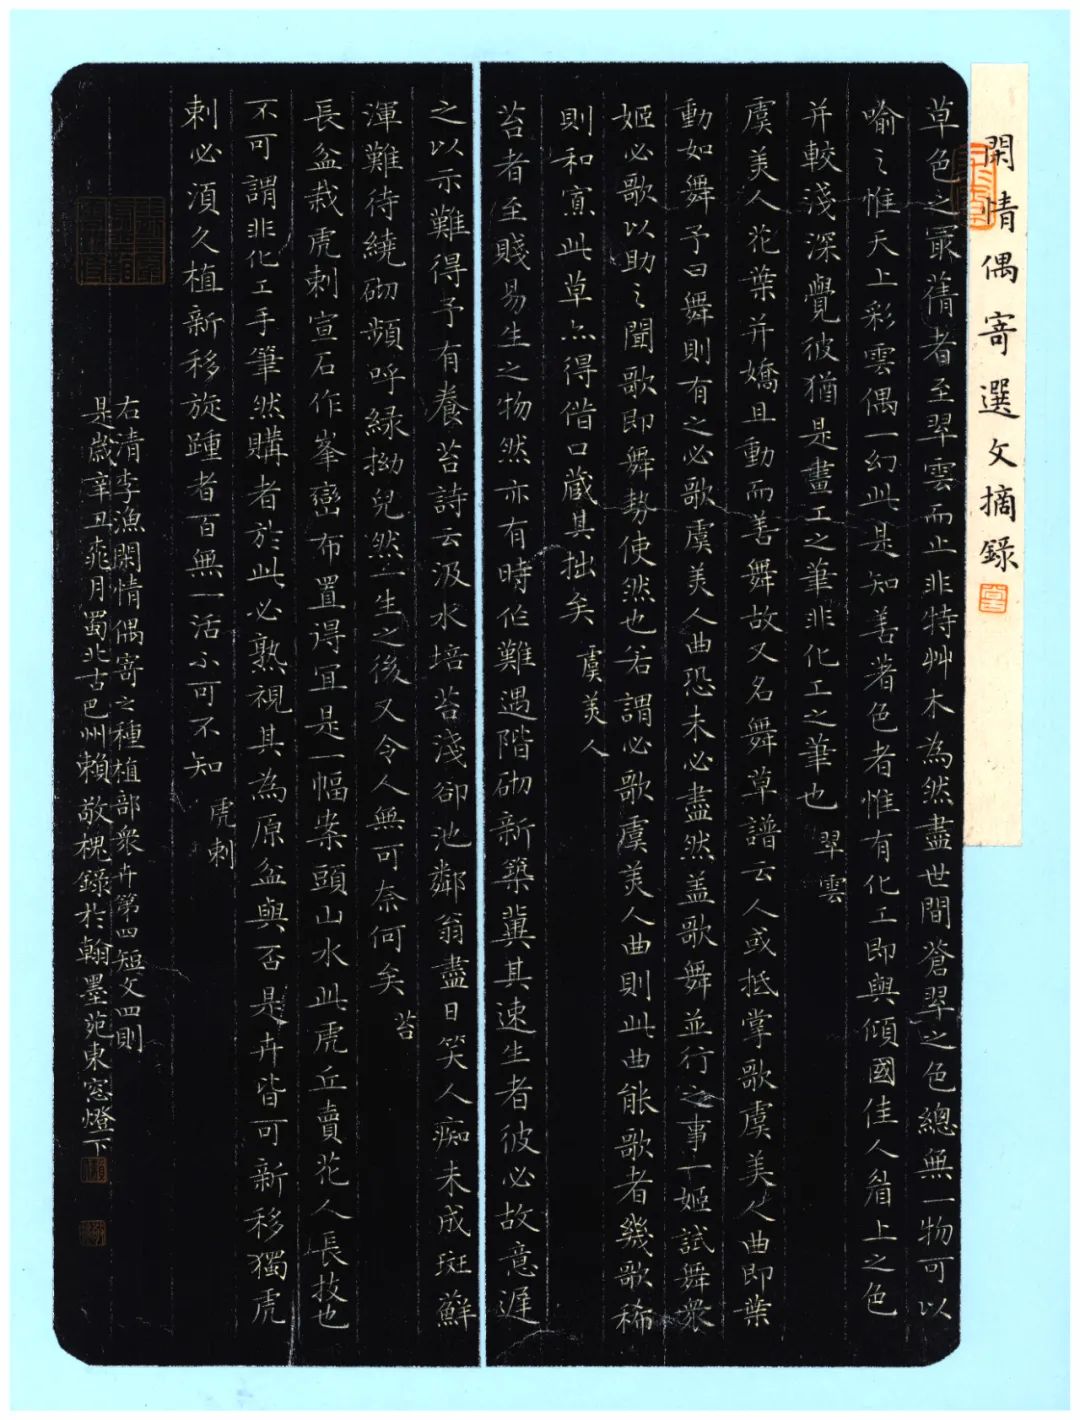 閑情偶寄選文摘錄
草色之最蒨者至翠雲而止非特艸木為然盡世間蒼翠之色總無一物可以
喻之惟天上彩雲偶一幻此是知善著色者惟有化工即與傾國佳人眉上之色
并較淺深覺彼猶是畫工之筆非化工之筆也 翠雲
虞美人花葉并嬌且動而善舞故又名舞草譜云人或抵掌歌虞美人曲即葉
動如舞予曰舞則有之必歌虞美人曲恐未必盡然盖歌舞並行之事一姬試舞衆
姬必歌以助之聞歌即舞勢使然也若謂必歌虞美人曲則此曲能歌者幾歌稀
則和寡此草亦得借口藏其拙矣 虞美人
苔者至賤易生之物然亦有時作難遇階砌新築冀其速生者彼必故意遲
之以示難得予有養苔詩云汲水培苔淺卻池鄰翁盡日笑人痴未成斑蘚
渾難待繞砌頻呼緑拗兒然一生之後又令人無可奈何矣 苔
長盆栽虎刺宣石作峯巒布置得宜是一幅案頭山水此虎丘賣花人長技也
不可謂非化工手筆然購者於此必熟視其為原盆與否是卉皆可新移獨虎
刺必須久植新移旋踵者百無一活不可不知 虎刺
右清李漁閑情偶寄之種植部衆卉第四短文四則
是歲辛丑桒月蜀北古巴州賴敬槐錄於翰墨苑東窓燈下